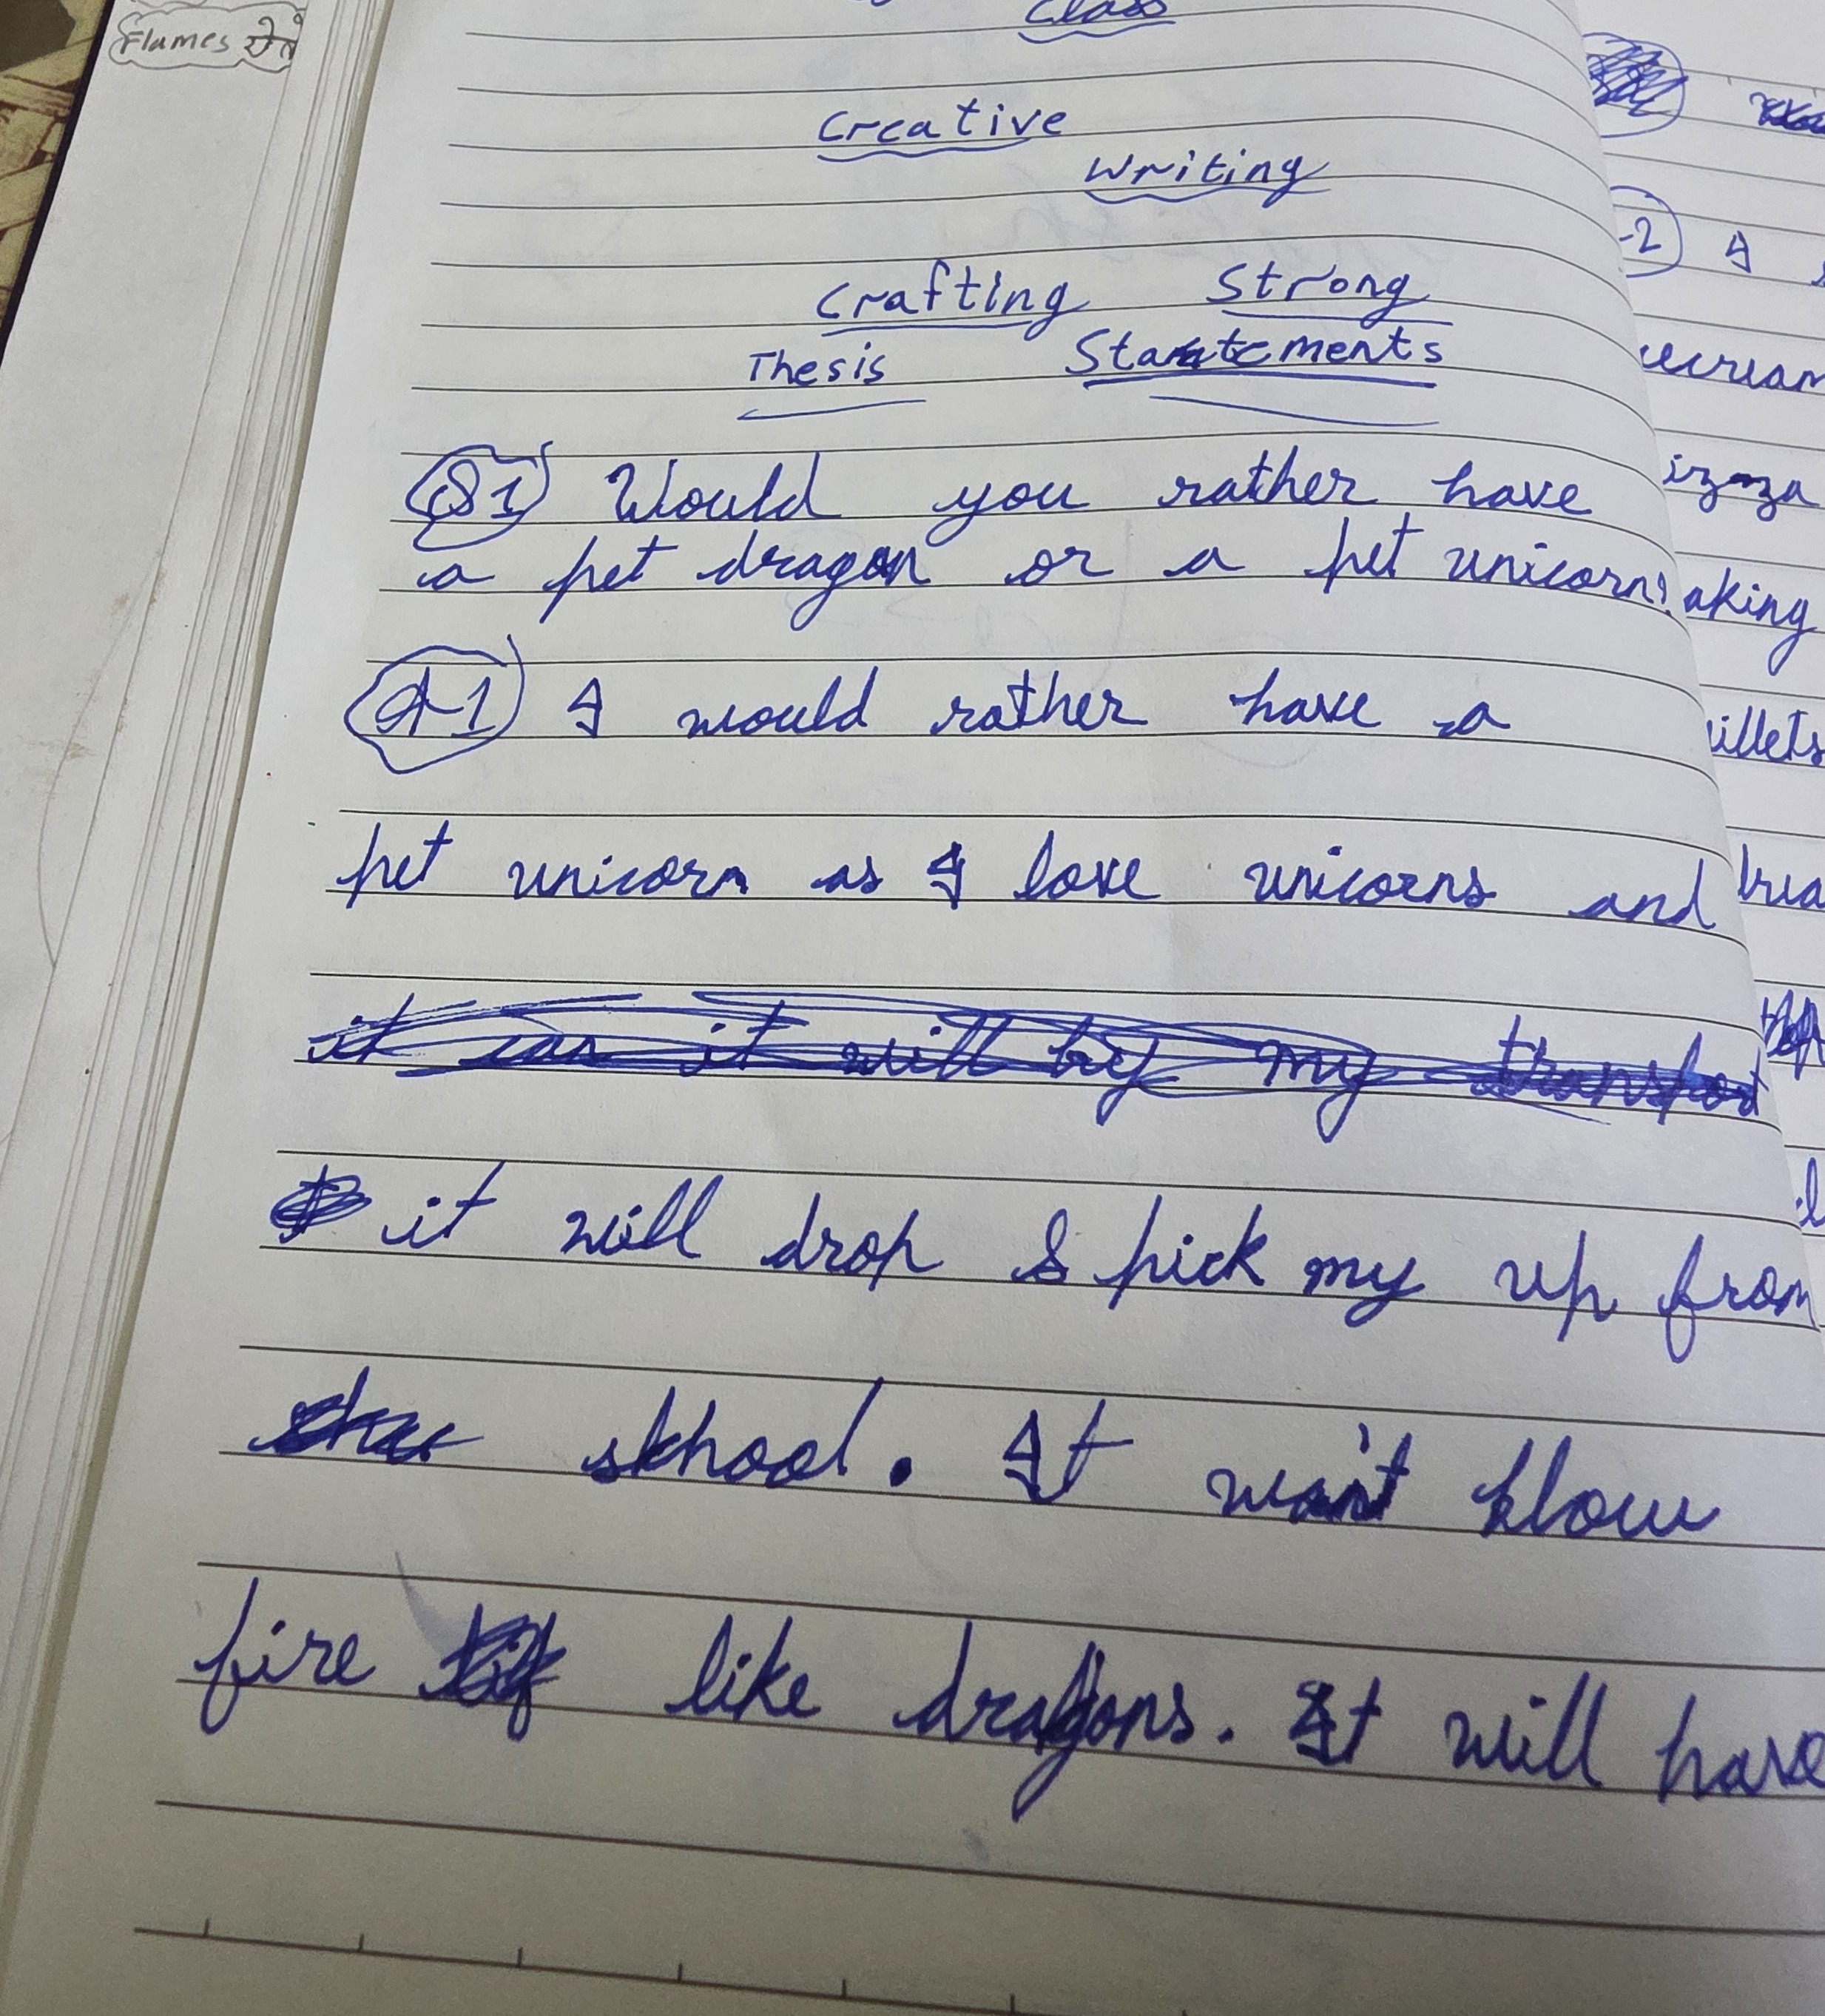 Flames
Class
Creative
Writing
Crafting Strong
Thesis Statements
Q1 Would you rather have
a pet dragon or a pet unicorn?
A-1 I would rather have a
pet unicorn as I love unicorns and
it can it will by my transport
it will drop & pick my up from
skhool. It won't blow
fire like dragons. It will have
-2 I
izza
aking
illets